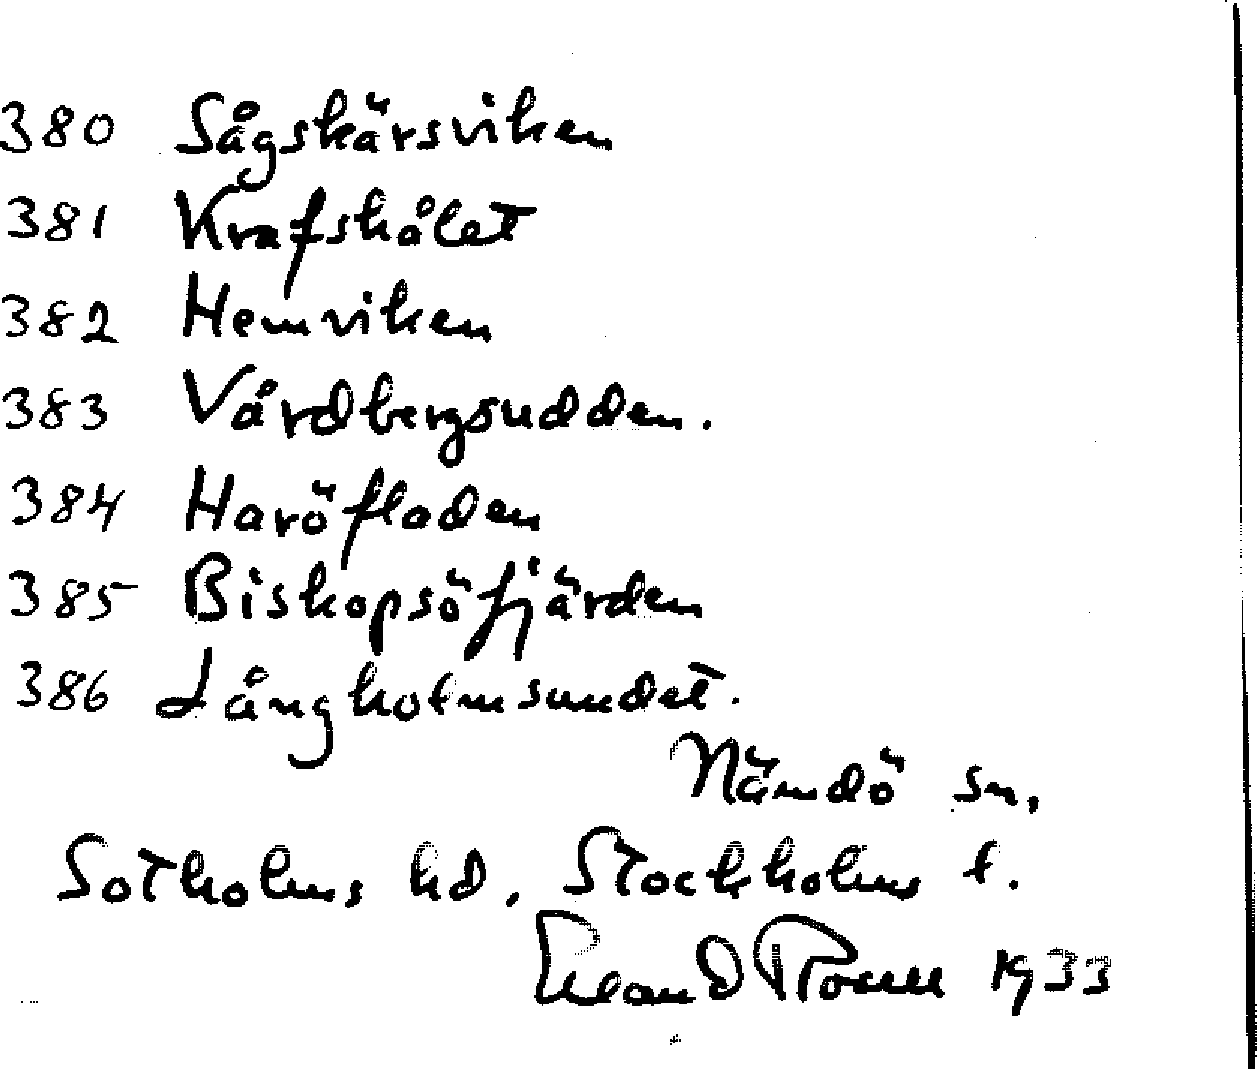 380 Sågskärsviken
381 Krafskålet
382 Hemviken
383 Vårdbergsudden.
384 Haröfladen
385 Biskopsöfjärden
386 Långholmsundet.
Nämdö sn.
Sotholms hd. Stockholms l.
Erland Rosell 1933